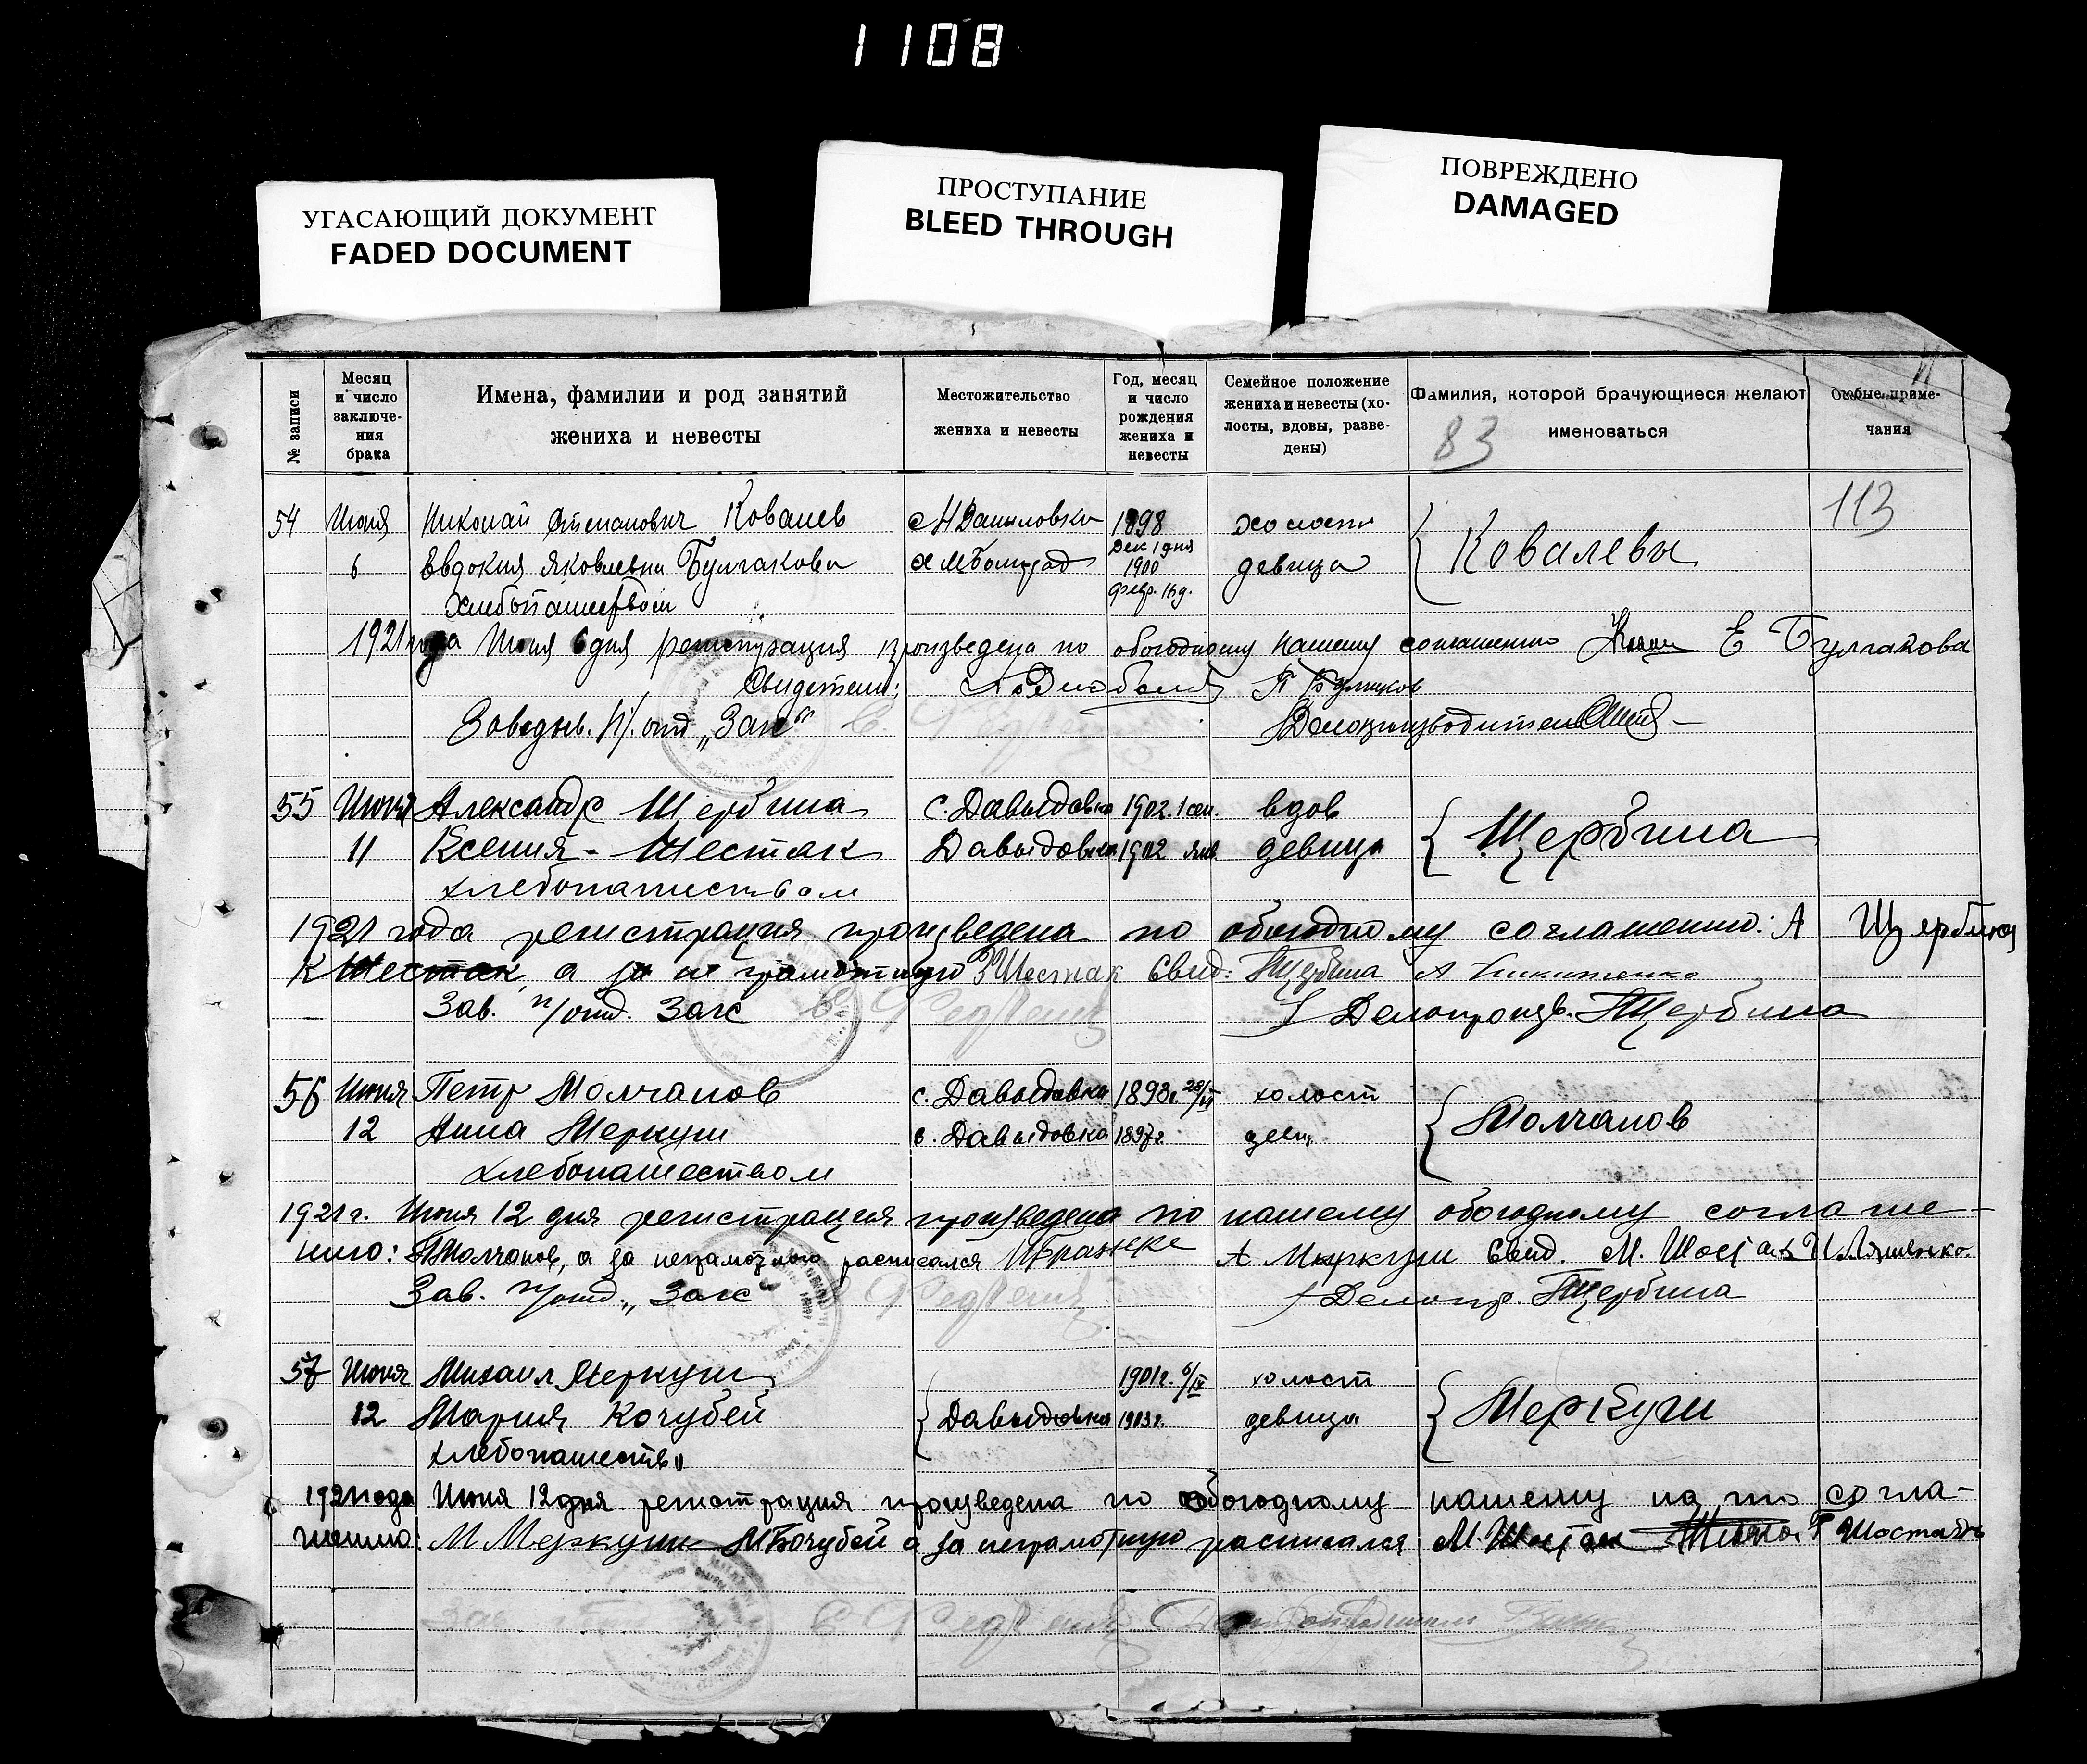 1108
УГАСАЮЩИЙ ДОКУМЕНТ
FADED DOCUMENT
ПРОСТУПАНИЕ
BLEED THROUGH
ПОВРЕЖДЕНО
DAMAGED
№ записи
Месяц и число заключе-ния брака
Имена, фамилии и род занятий жениха и невесты
Местожительство жениха и невесты
Год, месяц и число рождения жениха и невесты
Семейное положение жениха и невесты (хо-лосты, вдовы, разве-дены)
Фамилия, которой брачующиеся желают именоваться
Особые приме-чания
83
113
54 Июня Николай Степанович Ковалев 1898 холост
Дек 1 дня
6 Евдокия Яковлевна Булгакова 1900 девица Ковалевы
Февр. 16 д.
Хлебопашеством
1921 года Июня 6 дня регистрация произведена по обоюдному нашему соглашению Е Булгакова
Свидетели:
Заведыв. П/отд „Загс“ Делопроизводитель
55 Июня Александр Щербина с. Давыдовка 1902. 1 сен. вдов
11 Ксения - Шестак Давыдовка 1902 янв девица Щербина
хлебопашеством
1921 года регистрация произведена по обоюдному соглашению: А Щербина
К Шестак, а за не грамотную Шестак Свид: Щербина А Никитенко
Зав. п/отд. Загс Делопроизв. Щербина
56 Июня Петр Молчанов с. Давыдовка 1893г. холост
12 Анна Меркуш с. Давыдовка 1897г. девиц. Молчанов
хлебопашеством
1921 г. Июня 12 дня регистрация произведена по нашему обоюдному соглаше-
нию: Молчанов, а за неграмотного расписался А Меркуш Свид. М. Шостак И. Ляшенко
Зав. п/отд. „Загс“ Делопр. Щербина
57 Июня Михаил Меркуш 1901г. 6/IX холост
12 Мария Кочубей Давыдовка 1903г. девица Меркуш
хлебопашество
1921 года Июня 12 дня регистрация произведена по обоюдному нашему на то согла-
шению: М Меркуш М Кочубей а за неграмотную расписался М. Шостак Шостак